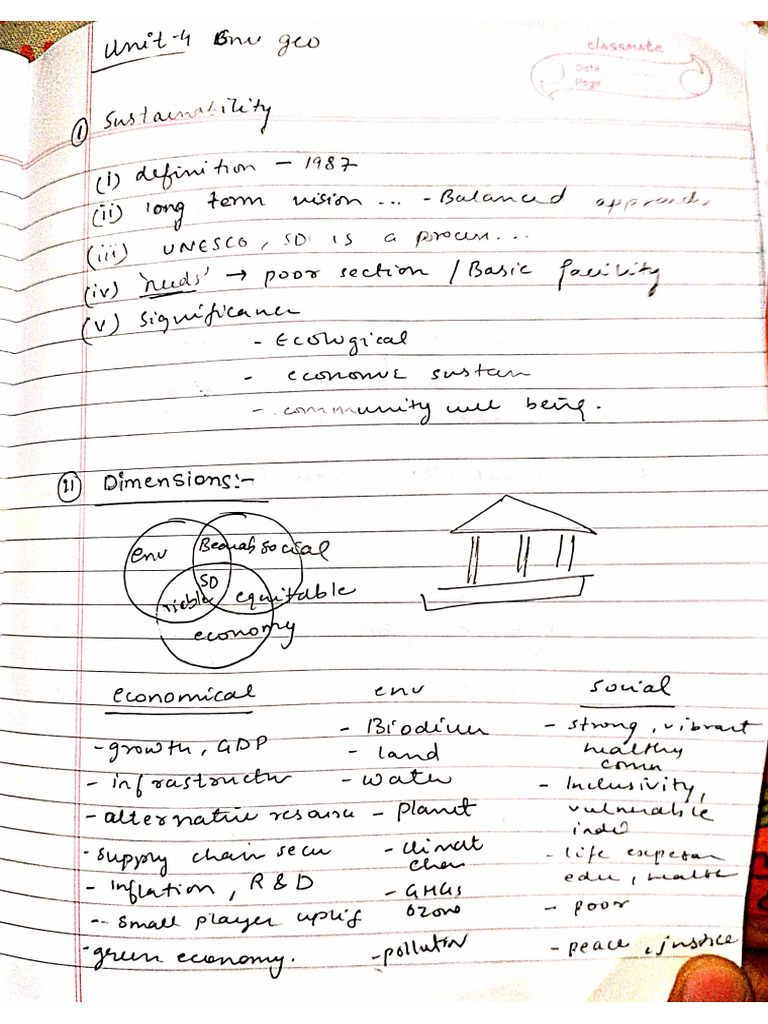 Unit-4 Env geo
classmate
Date
Page
① Sustainability
(i) definition - 1987
(ii) long term vision ... - Balanced approach
(iii) UNESCO, SD is a process...
(iv) 'needs' → poor section / Basic facility
(v) significance
- Ecological
- economic sustain
- community well being.
② Dimensions:-
env
social
SD
equitable
economy
economical env social
- growth, GDP
- infrastructr
- alternative resource
- supply chain secu
- inflation, R & D
- small player uplif
- green economy.
- land
- water
- planet
- climat
chan
- GHGs
ozone
- pollution
- strong, vibrant
healthy
comm
- Inclusivity,
vulnerable
indi
- life expectan
edu, health
- poor
- peace, justice